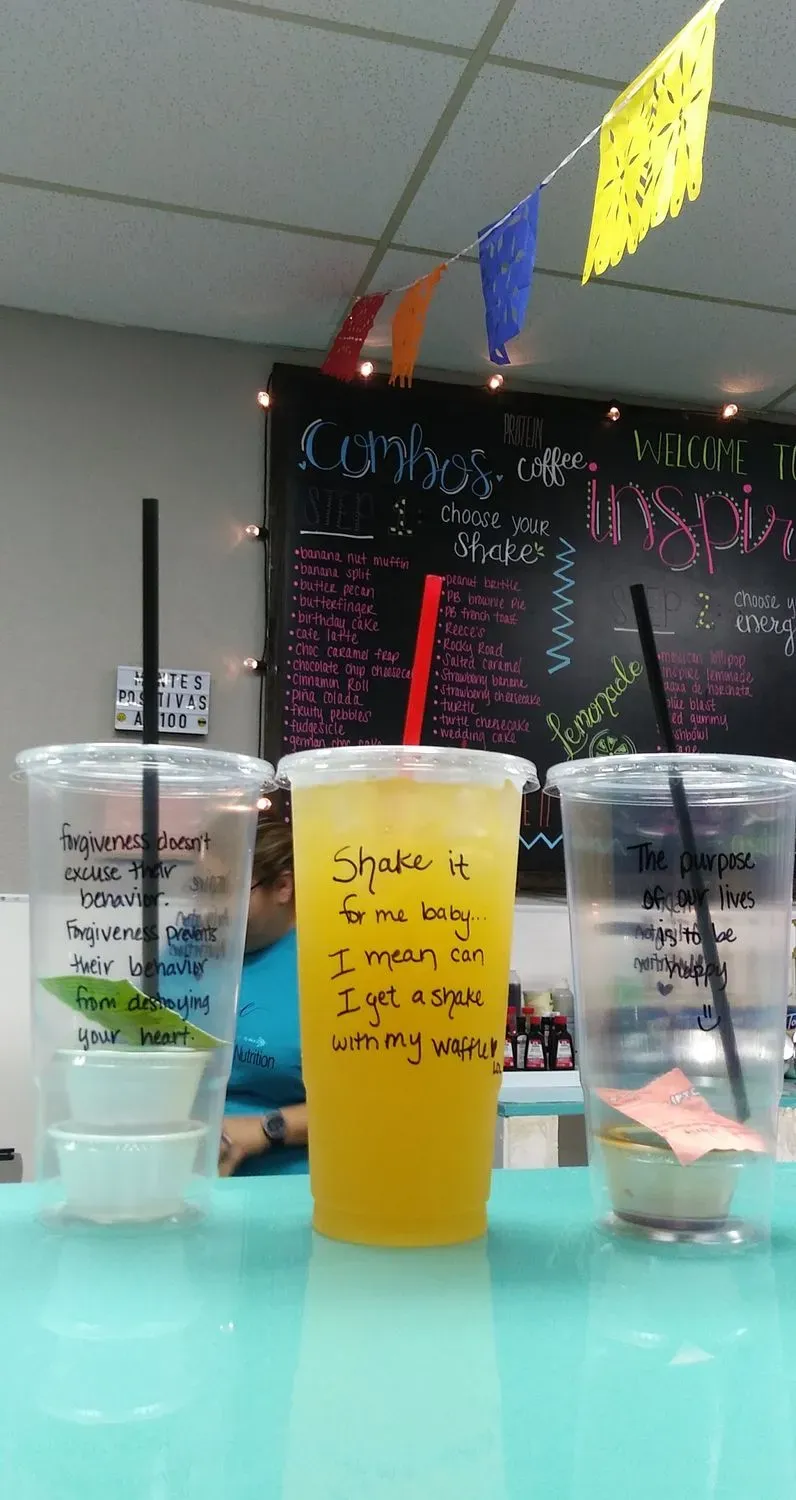 PROTEIN
combos
coffee
WELCOME TO
inspir
STEP 1:
choose your
shake
• banana nut muffin
• banana split
• butter pecan
• butterfinger
• birthday cake
• cafe latte
• choc caramel frap
• chocolate chip cheeseca
• cinnamon Roll
• piña colada
• fruity pebbles
• fudgesicle
• german choc cake
• peanut brittle
• PB brownie Pie
• PB french toast
• Reece's
• Rocky Road
• Salted caramel
• strawberry banana
• strawberry cheesecake
• turtle
• turtle cheesecake
• wedding cake
STEP 2:
choose y
energ
• mexican lollipop
inspire lemonade
agua de horchata
blue blast
red gummy
fishbowl
Lemonade
MENTES
POSITIVAS
AL 100
forgiveness doesn't
excuse their
behavior.
Forgiveness prevents
their behavior
from destroying
your heart.
Shake it
for me baby...
I mean can
I get a shake
with my waffle♥
LOL
The purpose
of our lives
is to be
happy
Nutrition